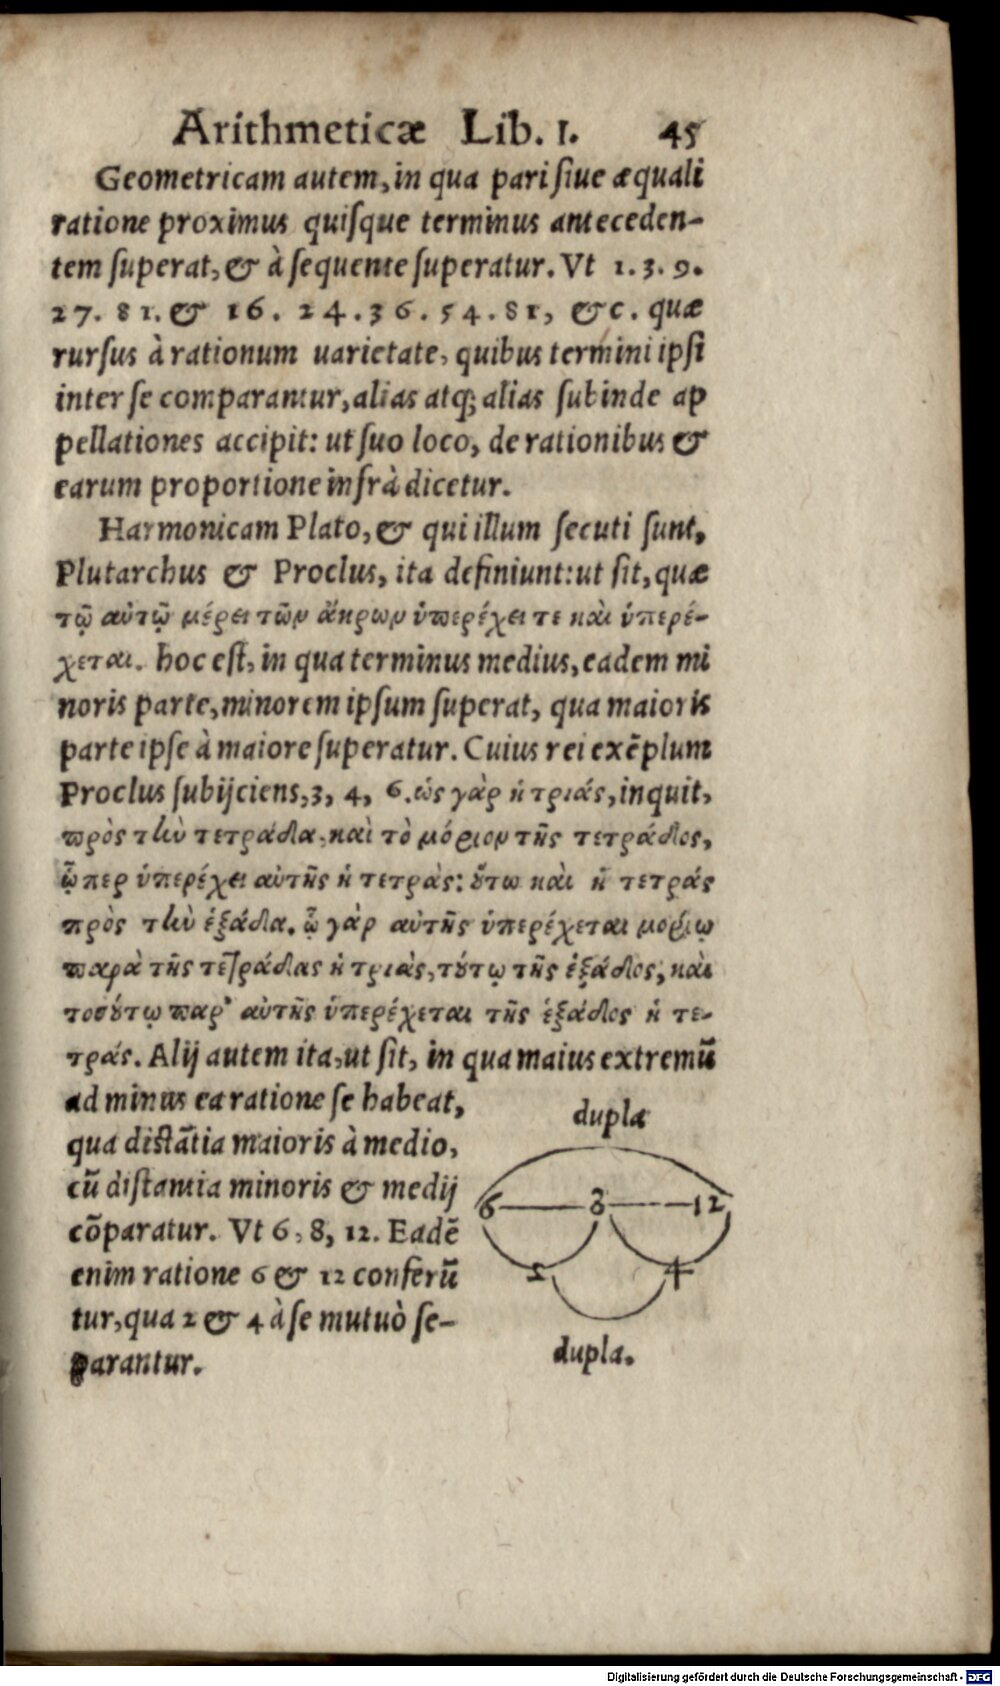 Arithmeticæ Lib. 1. 45
Geometricam autem, in qua pari siue æquali
ratione proximus quisque terminus anteceden-
tem superat, & à sequente superatur. Vt 1. 3. 9.
27. 81. & 16. 24. 36. 54. 81, &c. quæ
rursus à rationum uarietate, quibus termini ipsi
inter se comparantur, alias atq; alias subinde ap
pellationes accipit: ut suo loco, de rationibus &
earum proportione infrà dicetur.
Harmonicam Plato, & qui illum secuti sunt,
Plutarchus & Proclus, ita definiunt: ut sit, quæ
τῷ αὐτῷ μέρει τῶν ἄκρων ὑπερέχει τε καὶ ὑπερέ-
χεται. hoc est, in qua terminus medius, eadem mi
noris parte, minorem ipsum superat, qua maioris
parte ipse à maiore superatur. Cuius rei exēplum
Proclus subijciens, 3, 4, 6. ὡς γὰρ ἡ τριάς, inquit,
πρὸς τὴν τετράδα, καὶ τὸ μόριον τῆς τετράδος,
ᾧπερ ὑπερέχει αὐτῆς ἡ τετράς: ὅτω καὶ ἡ τετράς
πρὸς τὴν ἑξάδα. ᾧ γὰρ αὐτῆς ὑπερέχεται μορίῳ
παρὰ τῆς τετράδας ἡ τριὰς, τότῳ τῆς ἑξάδος, καὶ
τοσότῳ παρ' αὐτῆς ὑπερέχεται τῆς ἑξάδος ἡ τε-
τράς. Alij autem ita, ut sit, in qua maius extremū
ad minus ea ratione se habeat,
qua distātia maioris à medio,
cū distantia minoris & medij
cōparatur. Vt 6, 8, 12. Eadē
enim ratione 6 & 12 conferū
tur, qua 2 & 4 à se mutuò se-
parantur.
dupla
6 8 12
2 4
dupla.
Digitalisierung gefördert durch die Deutsche Forschungsgemeinschaft - DFG